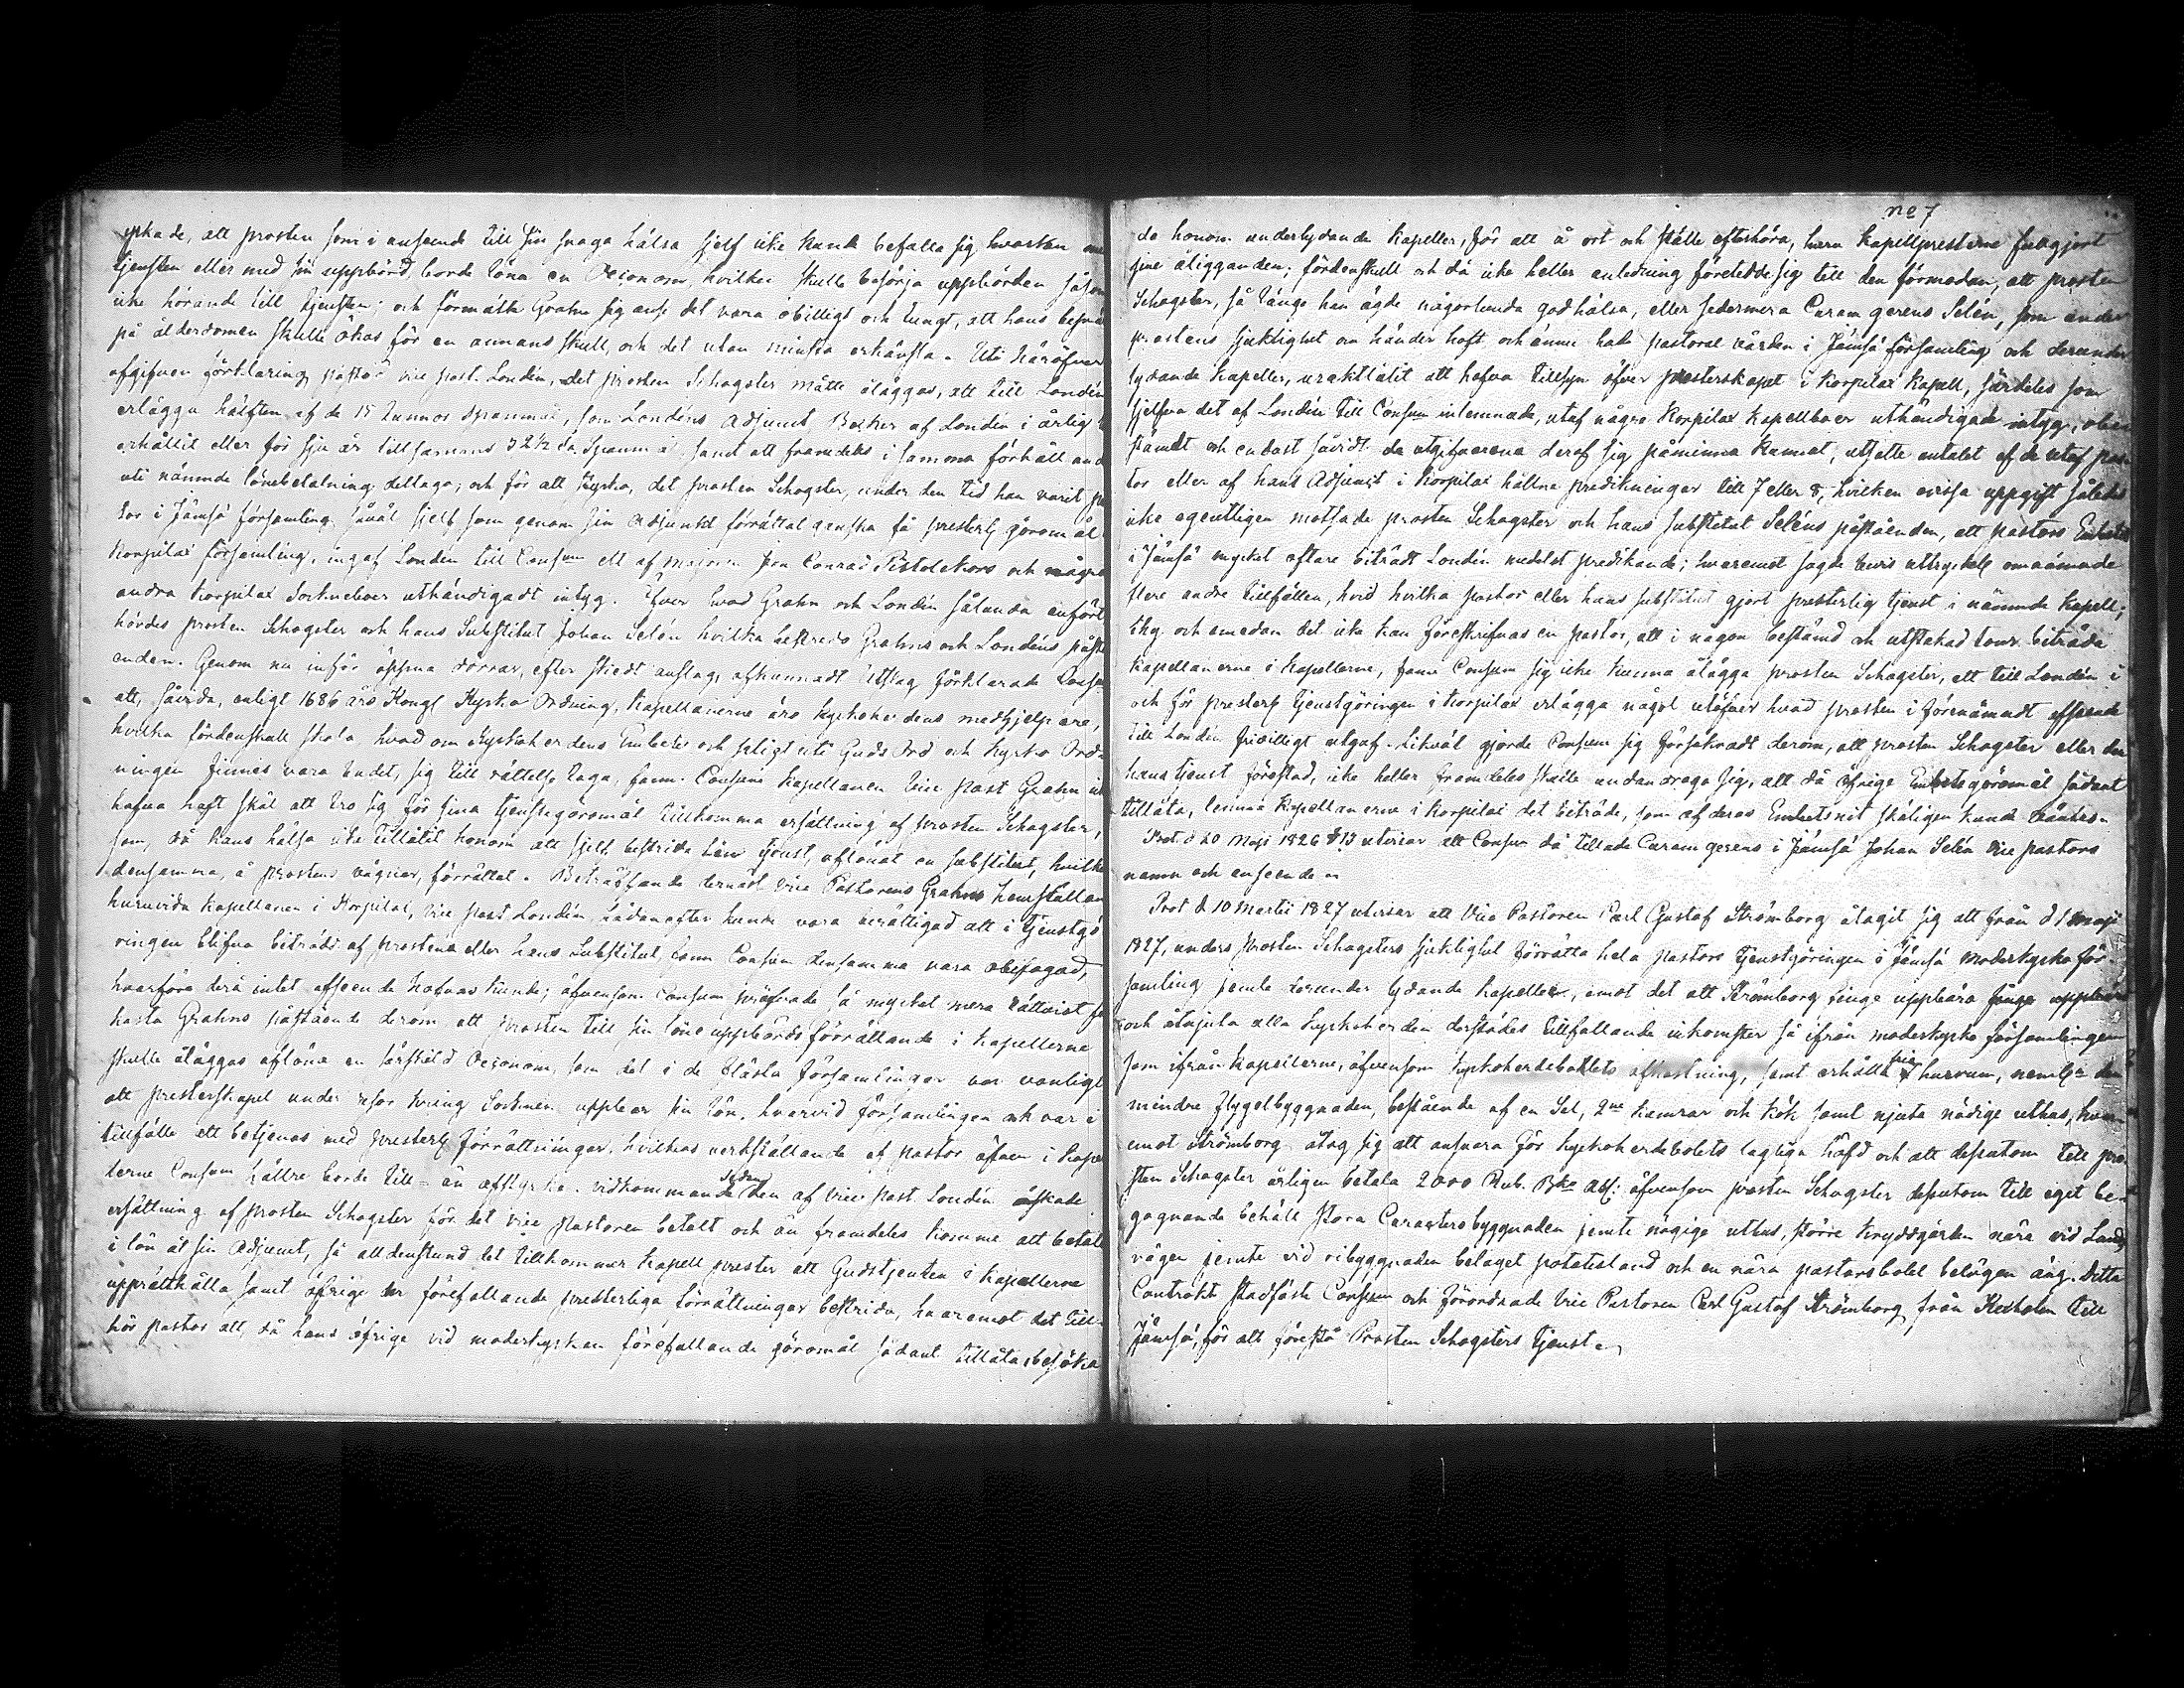 yrkade, att prosten som i anseende till sin svaga hälsa sjelf icke kunde befatta sig hvarken med
tjensten eller med sin uppbörd, borde löna en Oeconom, hvilken skulle besörja uppbörden såsom
icke hörande till tjensten; och förmälte Grahn sig anse det vara obilligt och tungt, att hans besvär
på ålderdomen skulle ökas för en annans skull, och det utan minsta erkänsla. Uti häröfver
afgifven förklaring påstod vice past. Londén, det prosten Schogster måtte åläggas, att till Londén
erlägga hälften af de 15 Tunnor spannmål, som Londéns Adjunct Becker af Londén i årlig
erhållit eller för sju år tillsamans 52 1/2 da Spanmål, samt att framdeles i samma förhållande
uti nämnde lönebetalning deltaga; och för att styrka, det prosten Schogster, under den tid han varit pa-
stor i Jämsä församling såväl sjelf som genom sin Adjunkt förrättat ganska få presterl. göromål i
Korpilax församling, ingaf Londén till Consum ett af Majoren Jon Conrad Pistolekors och några
andra Korpilax Sockneboer uthändigadt intyg. Öfver hvad Grahn och Londén sålunda anfört
hördes prosten Schogster och hans Substitut Johan Selén hvilka bestredo Grahns och Londéns påstå-
enden. Genom nu inför öppna dörrar, efter skedt anslag, afkunnadt Utslag förklarade Consum
att, såvida, enligt 1686 års Kongl Kyrko Ordning, Kapellanerne äro kyrkoherdens medhjelpare,
hvilka fördenskull skola, hvad om Kyrkoherdens Embete och sysligt uti Guds Ord och Kyrko Ord-
ningen finnes vara budet, sig till rättelse taga, fann Consum Kapellanen Vice Past Grahn icke
hafva haft skäl att tro sig för sina tjenstgöromål tillkomma ersättning af prosten Schogster,
som, då hans hälsa icke tillåtit honom att sjelf bestrida sin tjenst, aflönat en substitut, hvilken
densamma, å prostens vägnar, förrättat. Beträffande dernäst Vice Pastorens Grahns hemställan
huruvida Kapellanen i Korpilax, Vice past Londén hädanefter kunde vara berättigad att i tjenstgö-
ringen blifva biträdd af prosten eller hans Substitut, fann Consum densamma vara obefogad,
hvarföre derå intet afseende hafvas kunde; äfvensom Consum pröfvade så mycket mera rättvist för-
kasta Grahns påstående derom att prosten till sin löne uppbörds förrättande i Kapellerne
skulle åläggas aflöna en särskild Oeconom, som det i de flästa församlingar var vanligt
att presterskapet under resor kring Socknen uppbar sin lön, hvarvid församlingen och var i
tillfälle att betjenas med presterl. förrättningar, hvilkas verkställande af pastor äfven i Kapel-
lerne Consum hällre borde till- än afstyrka. Vidkommande sedan den af Vice past. Londén äskade
ersättning af prosten Schogster för det vice Pastoren betalt och än framdeles komme att betala
i lön åt sin Adjunct, så alldenstund det tillkommer Kapell prester att Gudstjensten i Kapellerne
upprätthålla samt öfrige der förefallande presterliga förrättningar bestrida, hvaremot det till-
hör pastor att, då hans öfrige vid moderkyrkan förefallande göromål sådant tillåta, besöka
no 7
de honom underlydande Kapeller, för att å ort och ställe efterhöra, huru Kapellpresterne fullgjort
sine åligganden; fördenskull och då icke heller anledning företedde sig till den förmodan, att prosten
Schogster, så länge han ägde någorlunda god hälsa, eller sedermera Curam gerens Selén, som under
prostens sjuklighet om händer haft och ännu hade pastoral vården i Jämsä församling och derunder
lydande Kapeller, uraktlåtit att hafva tillsyn öfver presterskapet i Korpilax Kapell, särdeles som
sjelfva det af Londén till Consum inlemnade, utaf några Korpilax Kapellboer uthändigade intyg, obe-
stämdt och endast såvidt de utgifvarena deraf sig påminna kunnat, utsatte antalet af de utaf pas-
tor eller af hans Adjunct i Korpilax hållna predikningar till 7 eller 8, hvilken ovissa uppgift således
icke egentligen motsade prosten Schogster och hans substitut Seléns påståenden, att pastors Embetet
i Jämsä mycket oftare biträdt Londén medelst predikande; hvaremot sagde bevis uttryckel. omnämnde
flere andre tillfällen, hvid hvilka pastor eller hans substitut gjort presterlig tjenst i nämnde Kapell;
thy och emedan det icke kan föreskrifvas en pastor, att i någon bestämd och utstakad tour biträda
kapellanerne i Kapellerne, fann Consum sig icke kunna ålägga prosten Schogster, att till Londén i
och för presterl. tjenstgöringen i Korpilax erlägga något utöfver hvad prosten i förenämndt afseende
till Londén friwilligt utgaf. Likväl gjorde Consum sig försäkradt derom, att prosten Schogster eller den
hans tjenst förestod, icke heller framdeles skulle undandraga sig, att då öfrige Embetsgöromål sådant
tillåta, lemna Kapellanerne i Korpilax det biträde, som af deras Embetsnit skäligen kunde väntas.
Prot. d 20 Maji 1826 § 13 utvisar att Consum då tillade Curam gerens i Jämsä Johan Selén Vice pastors
namn och anseende.
Prot d 10 Martii 1827 utvisar att Vice Pastoren Carl Gustaf Strömborg åtagit sig att från d 1 maji
1827, under Prosten Schogsters sjuklighet förrätta hela pastors tjenstgöringen i Jämsä Moderkyrko för-
samling jemte derunder lydande Kapeller, emot det att Strömborg finge uppbära finge uppbära
och åtnjuta alla kyrkoherden derstädes tillfallande inkomster så ifrån moderkyrko församlingen
som ifrån Kapellerne, äfvensom kyrkoherdebohlets afkastning, samt erhålla fria husrum, neml. den
mindre flygelbyggnaden, bestående af en Sal, 2ne kamrar och kök samt njuta nödige uthus, hvar-
emot Strömborg åtog sig att ansvara för kyrkoherdebolets lagliga häfd och att dessutom till pro-
sten Schogster årligen betala 2000 Rub. Bko Ass: äfvensom prosten Schogster dessutom till eget be-
gagnande behåll stora Caractersbyggnaden jemte nögige uthus, större Kryddgården nära vid Lands
vägen jemte vid ribyggnaden belaget potatisland och en nära pastorsbolet belägen äng. Detta
Contrakt stadfäste Consum och förordnade Vice Pastoren Carl Gustaf Strömborg från Kexholm till
Jämsä, för att förestå Prosten Schogsters tjenst.